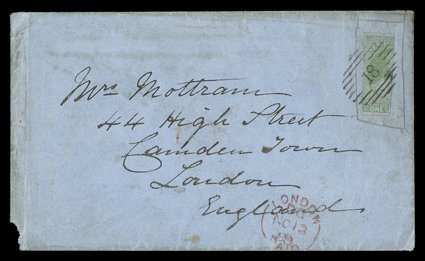 Mrs Mottram
44 High Street
Camden Town
London
England
18
LONDON